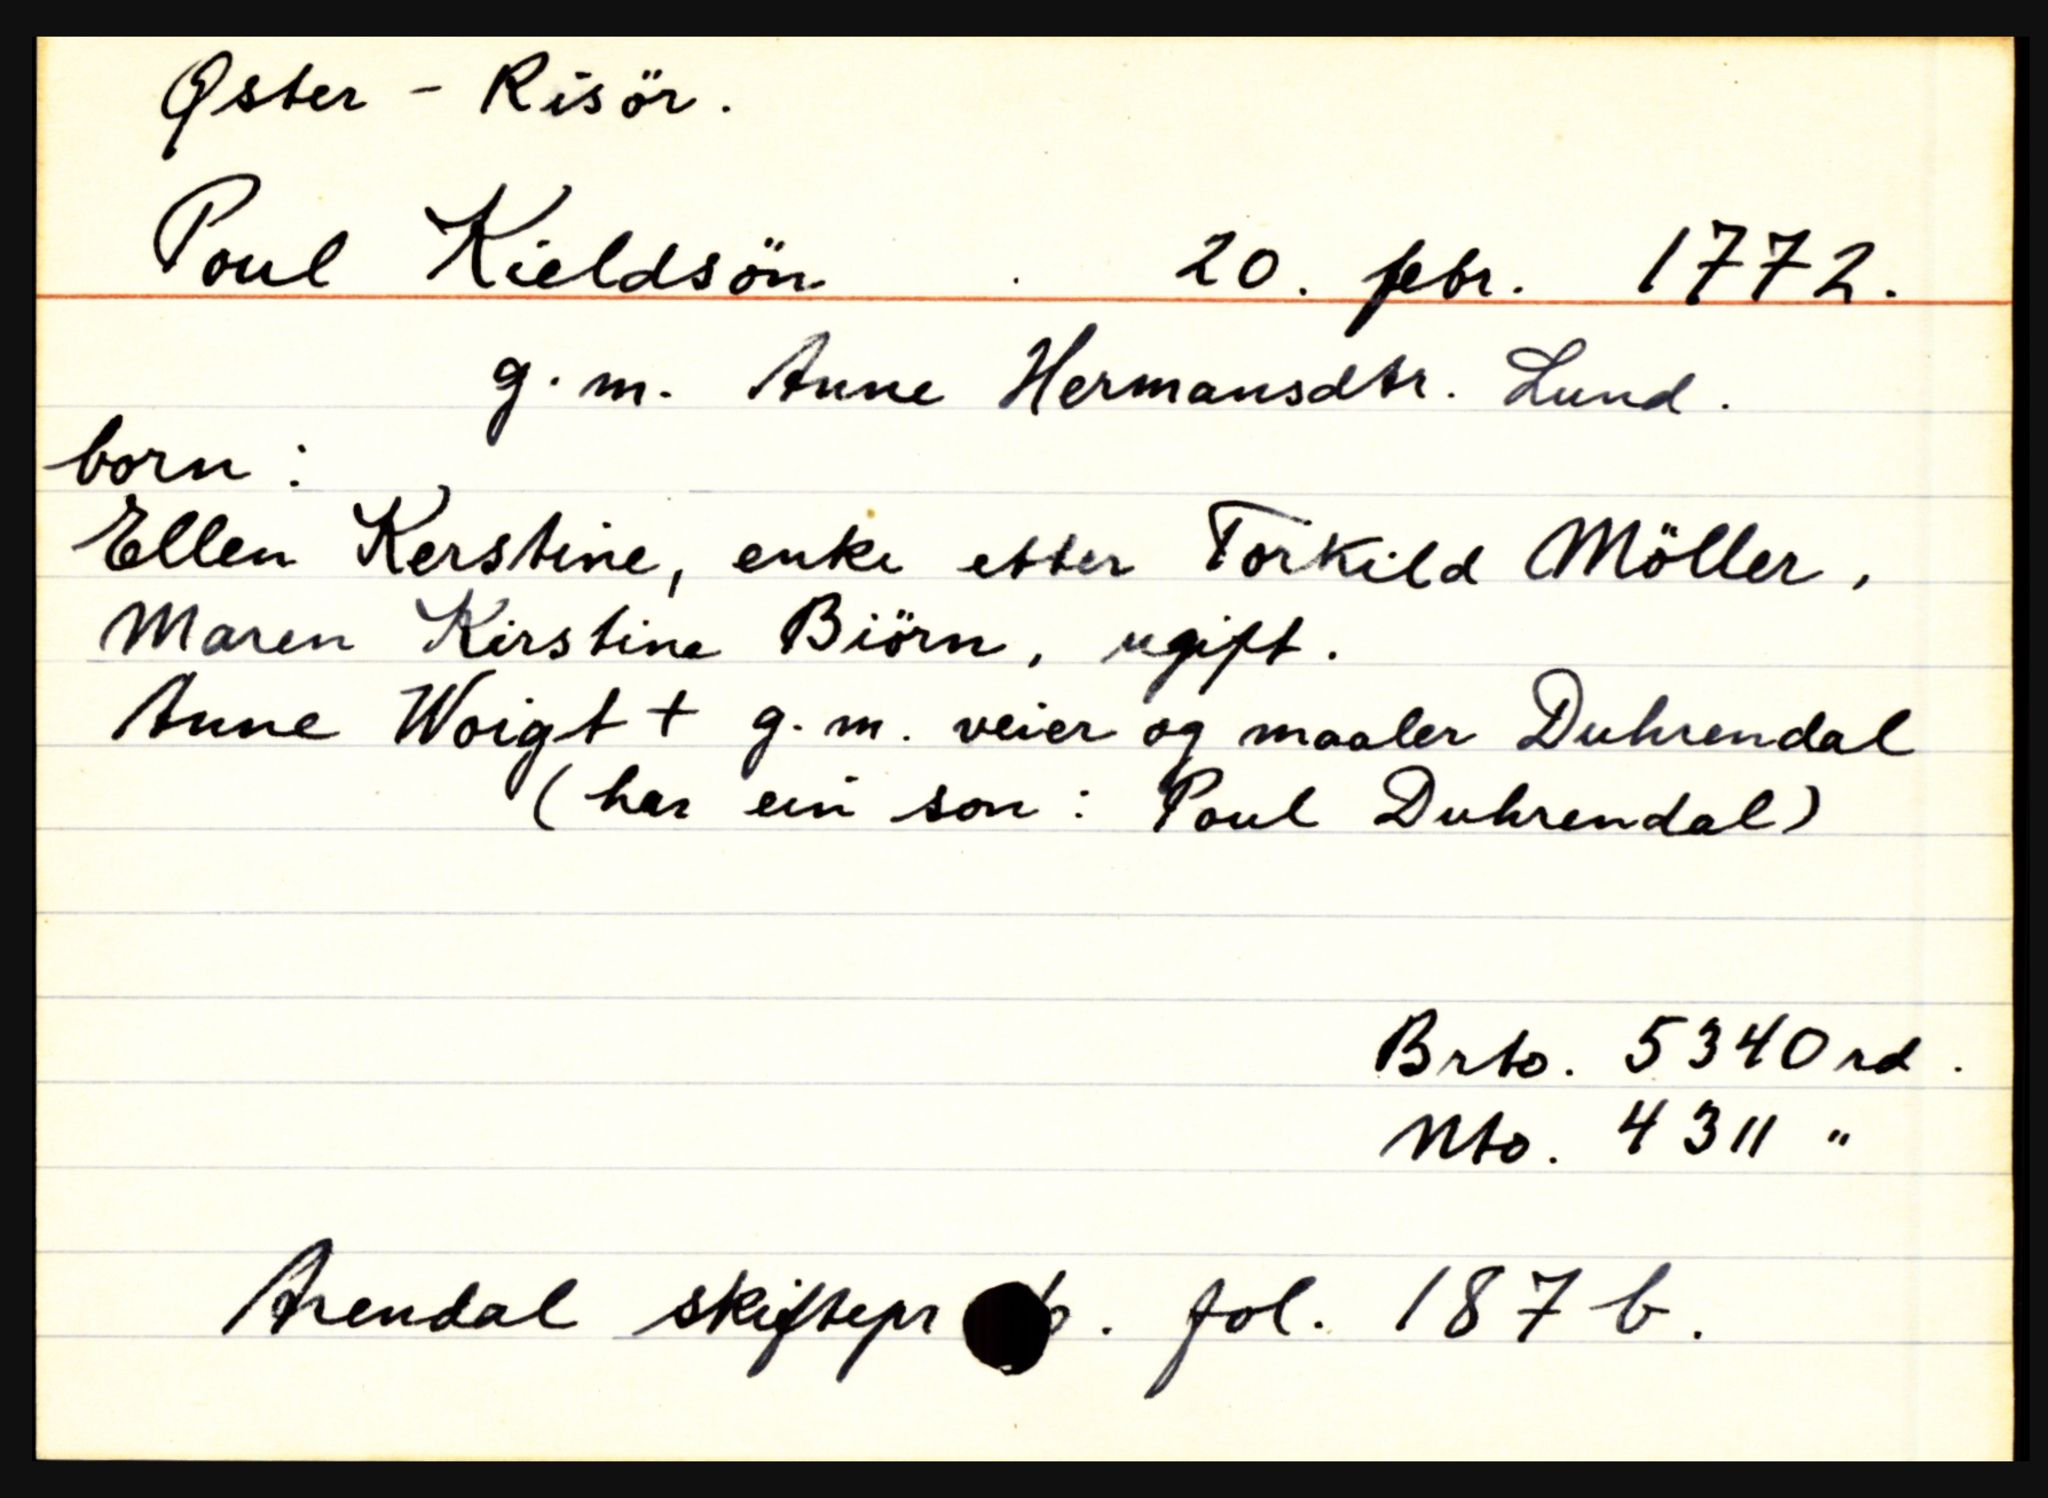 Øster - Risör.
Poul Kieldsön . 20. febr. 1772.
g. m. Anne Hermansdtr. Lund.
born :
Ellen Kerstine, enke etter Torkild Möller,
Maren Kirstine Biörn, ugift.
Anne Woigt + g. m. veier og maaler Duhrendal
(har ein son : Poul Duhrendal)
Brto. 5340 rd.
Nto. 4311 "
Arendal skiftepr 6. fol. 187 b.